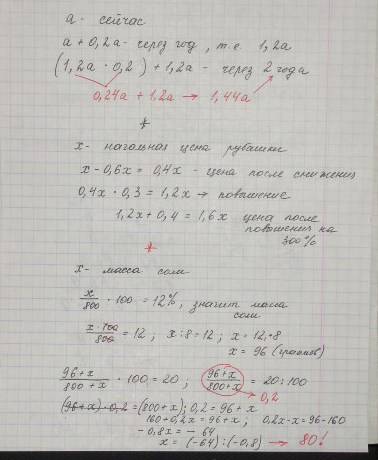 а - сейчас
а + 0,2а - через год, т.е. 1,2а
(1,2а · 0,2) + 1,2а - через 2 года
0,24а + 1,2а → 1,44а
*
х - начальная цена рубашки
х - 0,6х = 0,4х - цена после снижения
0,4х · 0,3 = 1,2х → повышение
1,2х + 0,4 = 1,6х цена после
повышения на
300%
*
х - масса соли
х/800 · 100 = 12%, значит масса
соли
х · 100/800 = 12; х : 8 = 12; х = 12 · 8
х = 96 (граммов)
96 + х/800 + х · 100 = 20; 96 + х/800 + х = 20 : 100
0,2
(96 + х) · 0,2 = (800 + х); 0,2 = 96 + х
160 + 0,2х = 96 + х; 0,2х - х = 96 - 160
-0,8х = -64
х = (-64) : (-0,8) → 80!